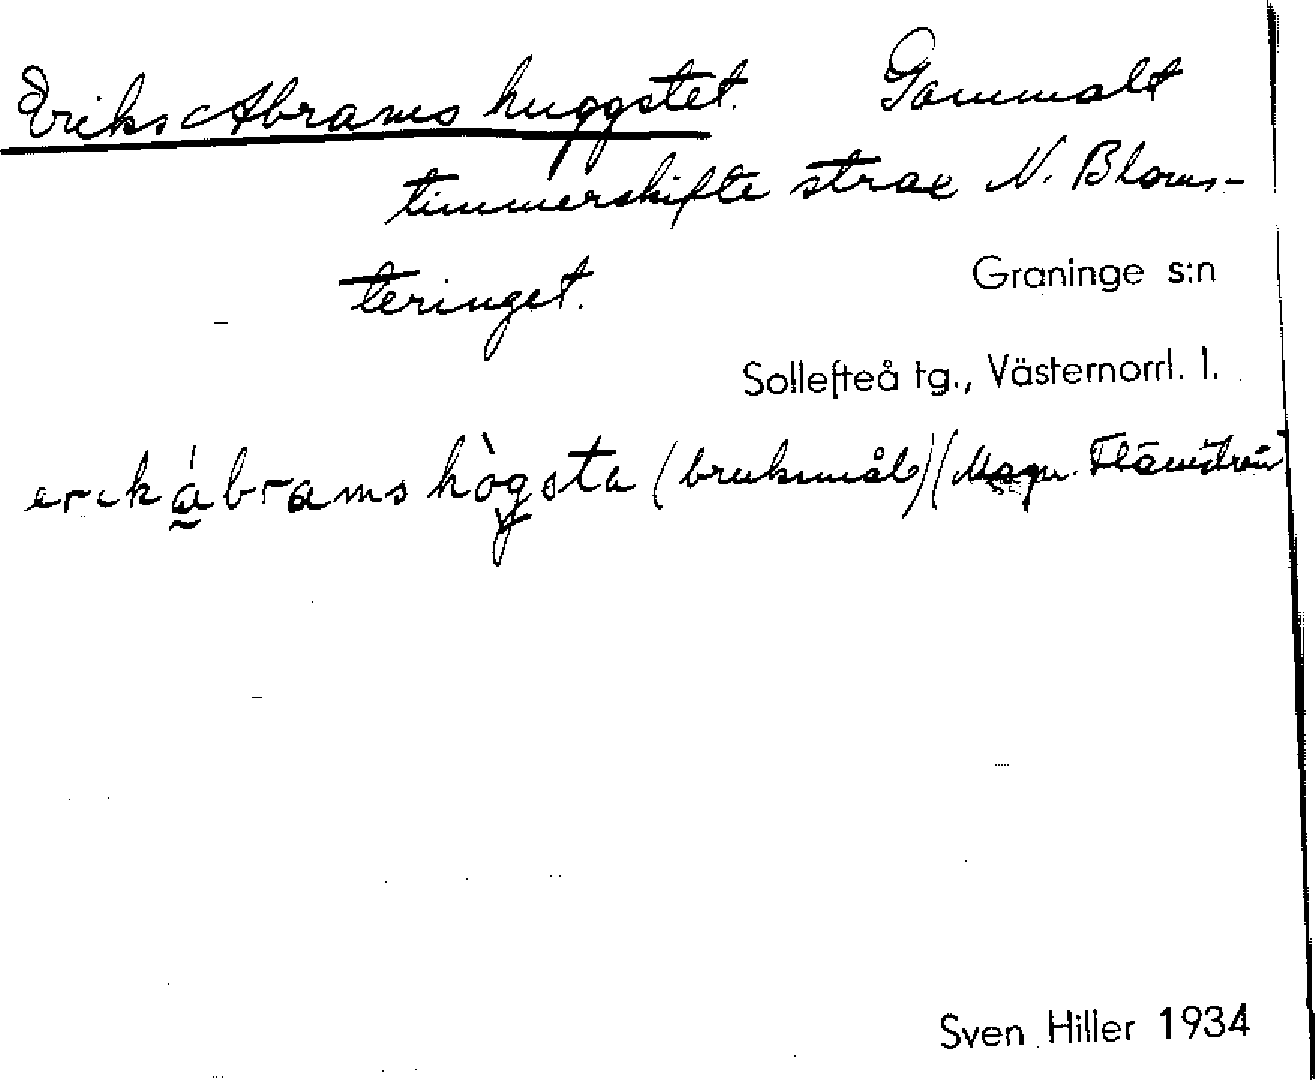 Eriks Abrams huggstet. Gammalt
timmerskifte strax N. Bloms-
teringet.
Graninge s:n
Sollefteå tg., Västernorrl. l.
erik ábrams hògsta (bruksmål) (Magn.
Sven Hiller 1934